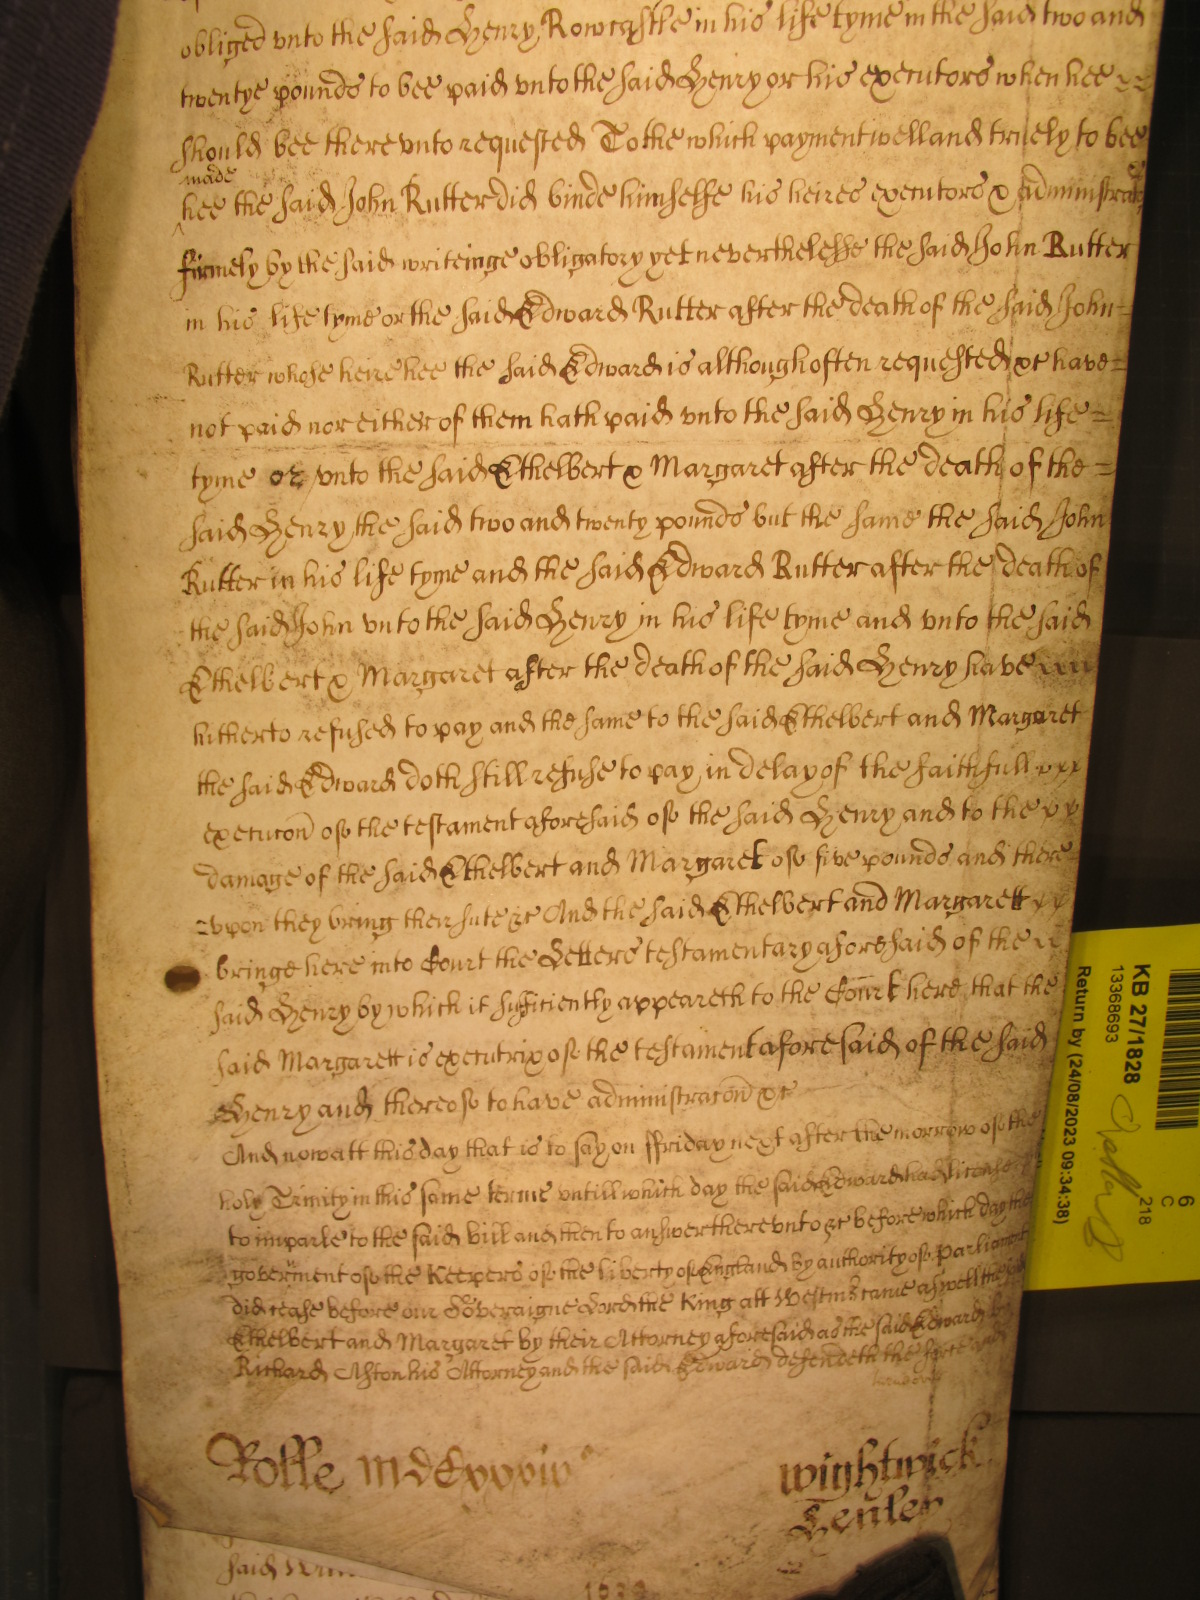 obliged vnto the said Henry Rowcastle in his life tyme in the said two and
twentye pounds to bee paid vnto the said Henry or his executors when hee
should bee there vnto requested To the which payment well and truely to bee
made
hee the said John Rutter did binde himselfe his heires executors & administrators
firmely by the said writeinge obligatory yet neverthelesse the said John Rutter
in his life tyme or the said Edward Rutter after the death of the said John
Rutter whose heire hee the said Edward is although often requested &c have
not paid nor either of them hath paid vnto the said Henry in his life
tyme or vnto the said Ethelbert & Margaret after the death of the
said Henry the said two and twenty pounds but the same the said John
Rutter in his life tyme and the said Edward Rutter after the death of
the said John vnto the said Henry in his life tyme and vnto the said
Ethelbert & Margaret after the death of the said Henry have
hitherto refused to pay and the same to the said Ethelbert and Margaret
the said Edward doth still refuse to pay in delay of the faithfull
execucon of the testament aforesaid of the said Henry and to the
damage of the said Ethelbert and Margaret of five pounds and there
vpon they bring their sute &c And the said Ethelbert and Margarett
bringe here into Court the Letters testamentary aforesaid of the
said Henry by which it sufficiently appeareth to the Court here that the
said Margarett is executrix of the testament aforesaid of the said
Henry and thereof to have administracon &c
And now att this day that is to say on ffriday next after the morrow of the
holy Trinity in this same terme vntill which day the said Edward had license
to imparle to the said bill and then to answer there vnto &c before which day the
goverment of the Keepers of the liberty of England by authority of parliament
did cease before our Soveraigne Lord the King att Westmr came aswell the said
Ethelbert and Margaret by their Attorney aforesaid as the said Edward by
Richard Aston his Attorney and the said Edward defendeth the force and
Rolle
wightwick
KB 27/1828
13368693
Return by (24/08/2023 09:34:38)
218
6
C
said